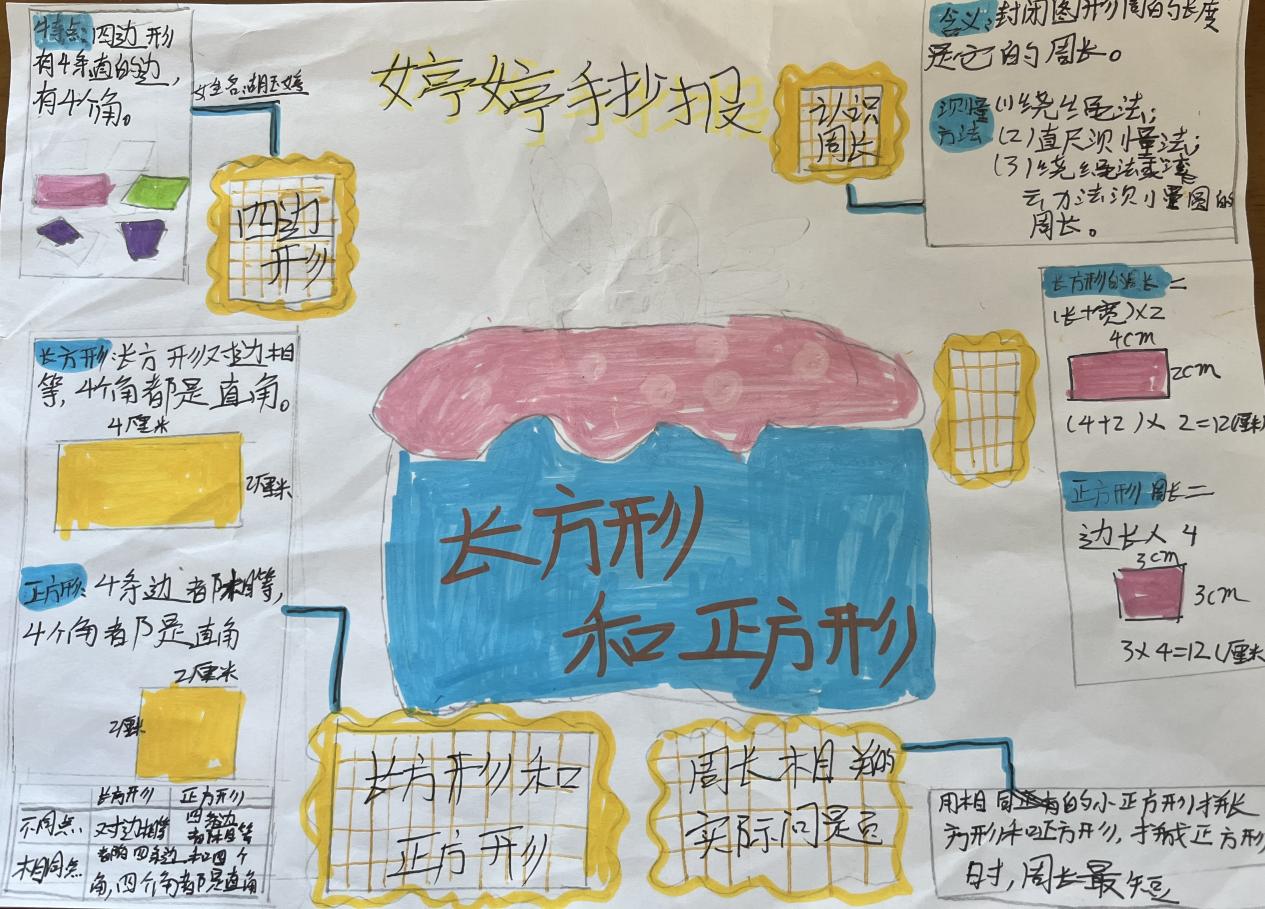 婷婷手抄报
特点:四边形
有4条直的边,
有4个角。
四边
形
认识
周长
含义:封闭图形一周的长度
是它的周长。
测量
方法
(1)绕绳法;
(2)直尺测量法;
(3)绕绳法
方法测量圆的
周长。
长方形:长方形对边相
等,4个角都是直角。
4厘米
2厘米
正方形:4条边都相等,
4个角都是直角
2厘米
2厘米
长方形 正方形
不同点 对边相等 四条边都相等
相同点 都有四条边和四个
角,四个角都是直角
长方形
和正方形
长方形的周长=
(长+宽)×2
4cm
2cm
(4+2)×2=12(厘米)
正方形周长=
边长×4
3cm
3cm
3×4=12(厘米
长方形和
正方形
周长相关的
实际问题
用相同的小正方形拼长
方形和正方形,拼成正方形
时,周长最短